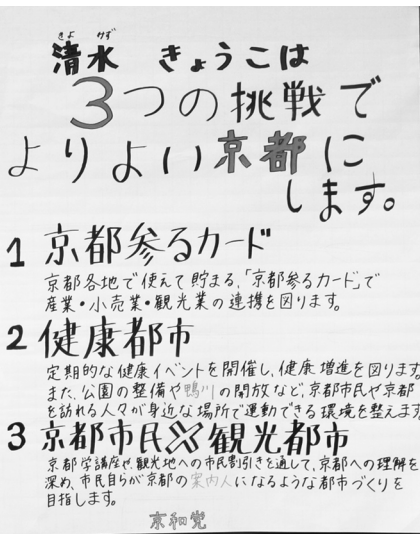 きよ みず
清水 きょうこは
3つの挑戦で
よりよい京都に
します。
1 京都参るカード
京都各地で使えて貯まる、「京都参るカード」で
産業・小売業・観光業の連携を図ります。
2 健康都市
定期的な健康イベントを開催し、健康増進を図ります。
また、公園の整備や鴨川の開放など、京都市民や京都
を訪れる人々が身近な場所で運動できる環境を整えます
3 京都市民×観光都市
京都学講座や、観光地への市民割引きを通して、京都への理解を
深め、市民自らが京都の案内人になるような都市づくりを
目指します。
京和党